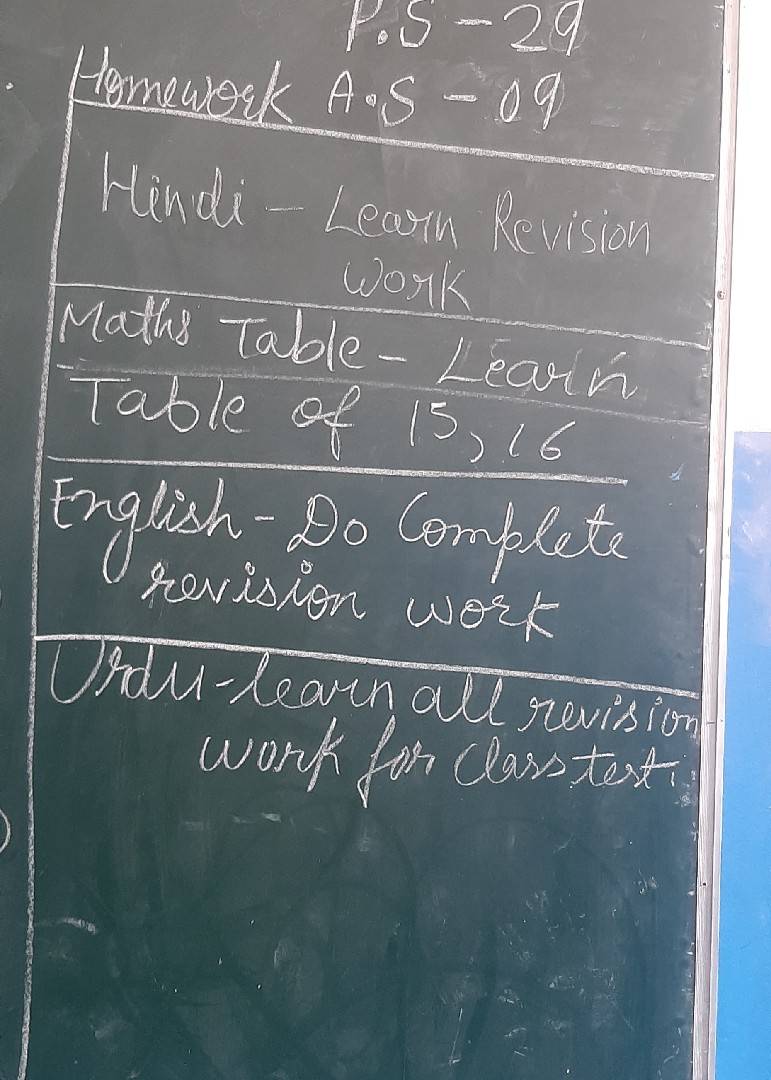 P.S - 29
Homework A.S - 09
Hindi - Learn Revision
Work
Maths Table - Learn
Table of 15, 16
English - Do Complete
revision work
Urdu - learn all revision
work for class test.